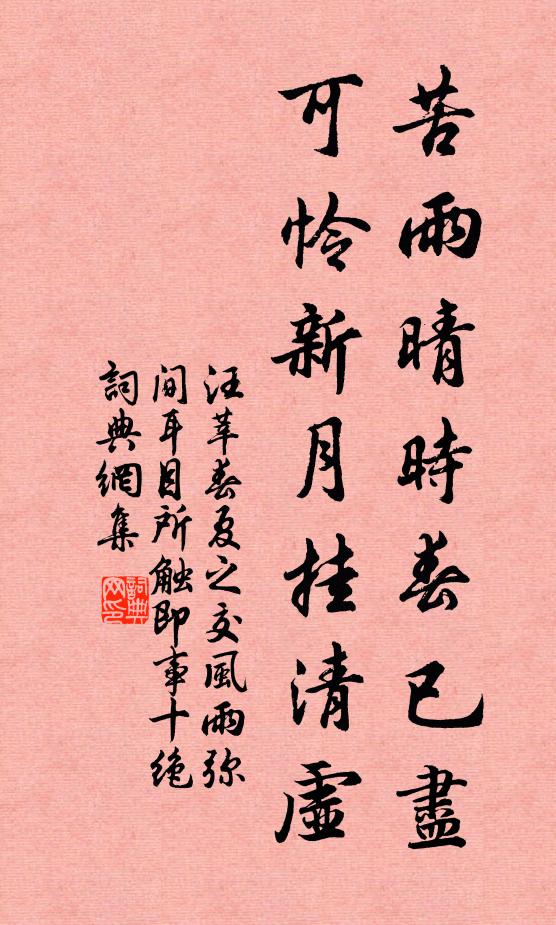 苦雨晴時春已盡
可憐新月挂清虛
汪莘春夏之交風雨弥
間耳目所触即事十绝
詞典網集
詞典
网印